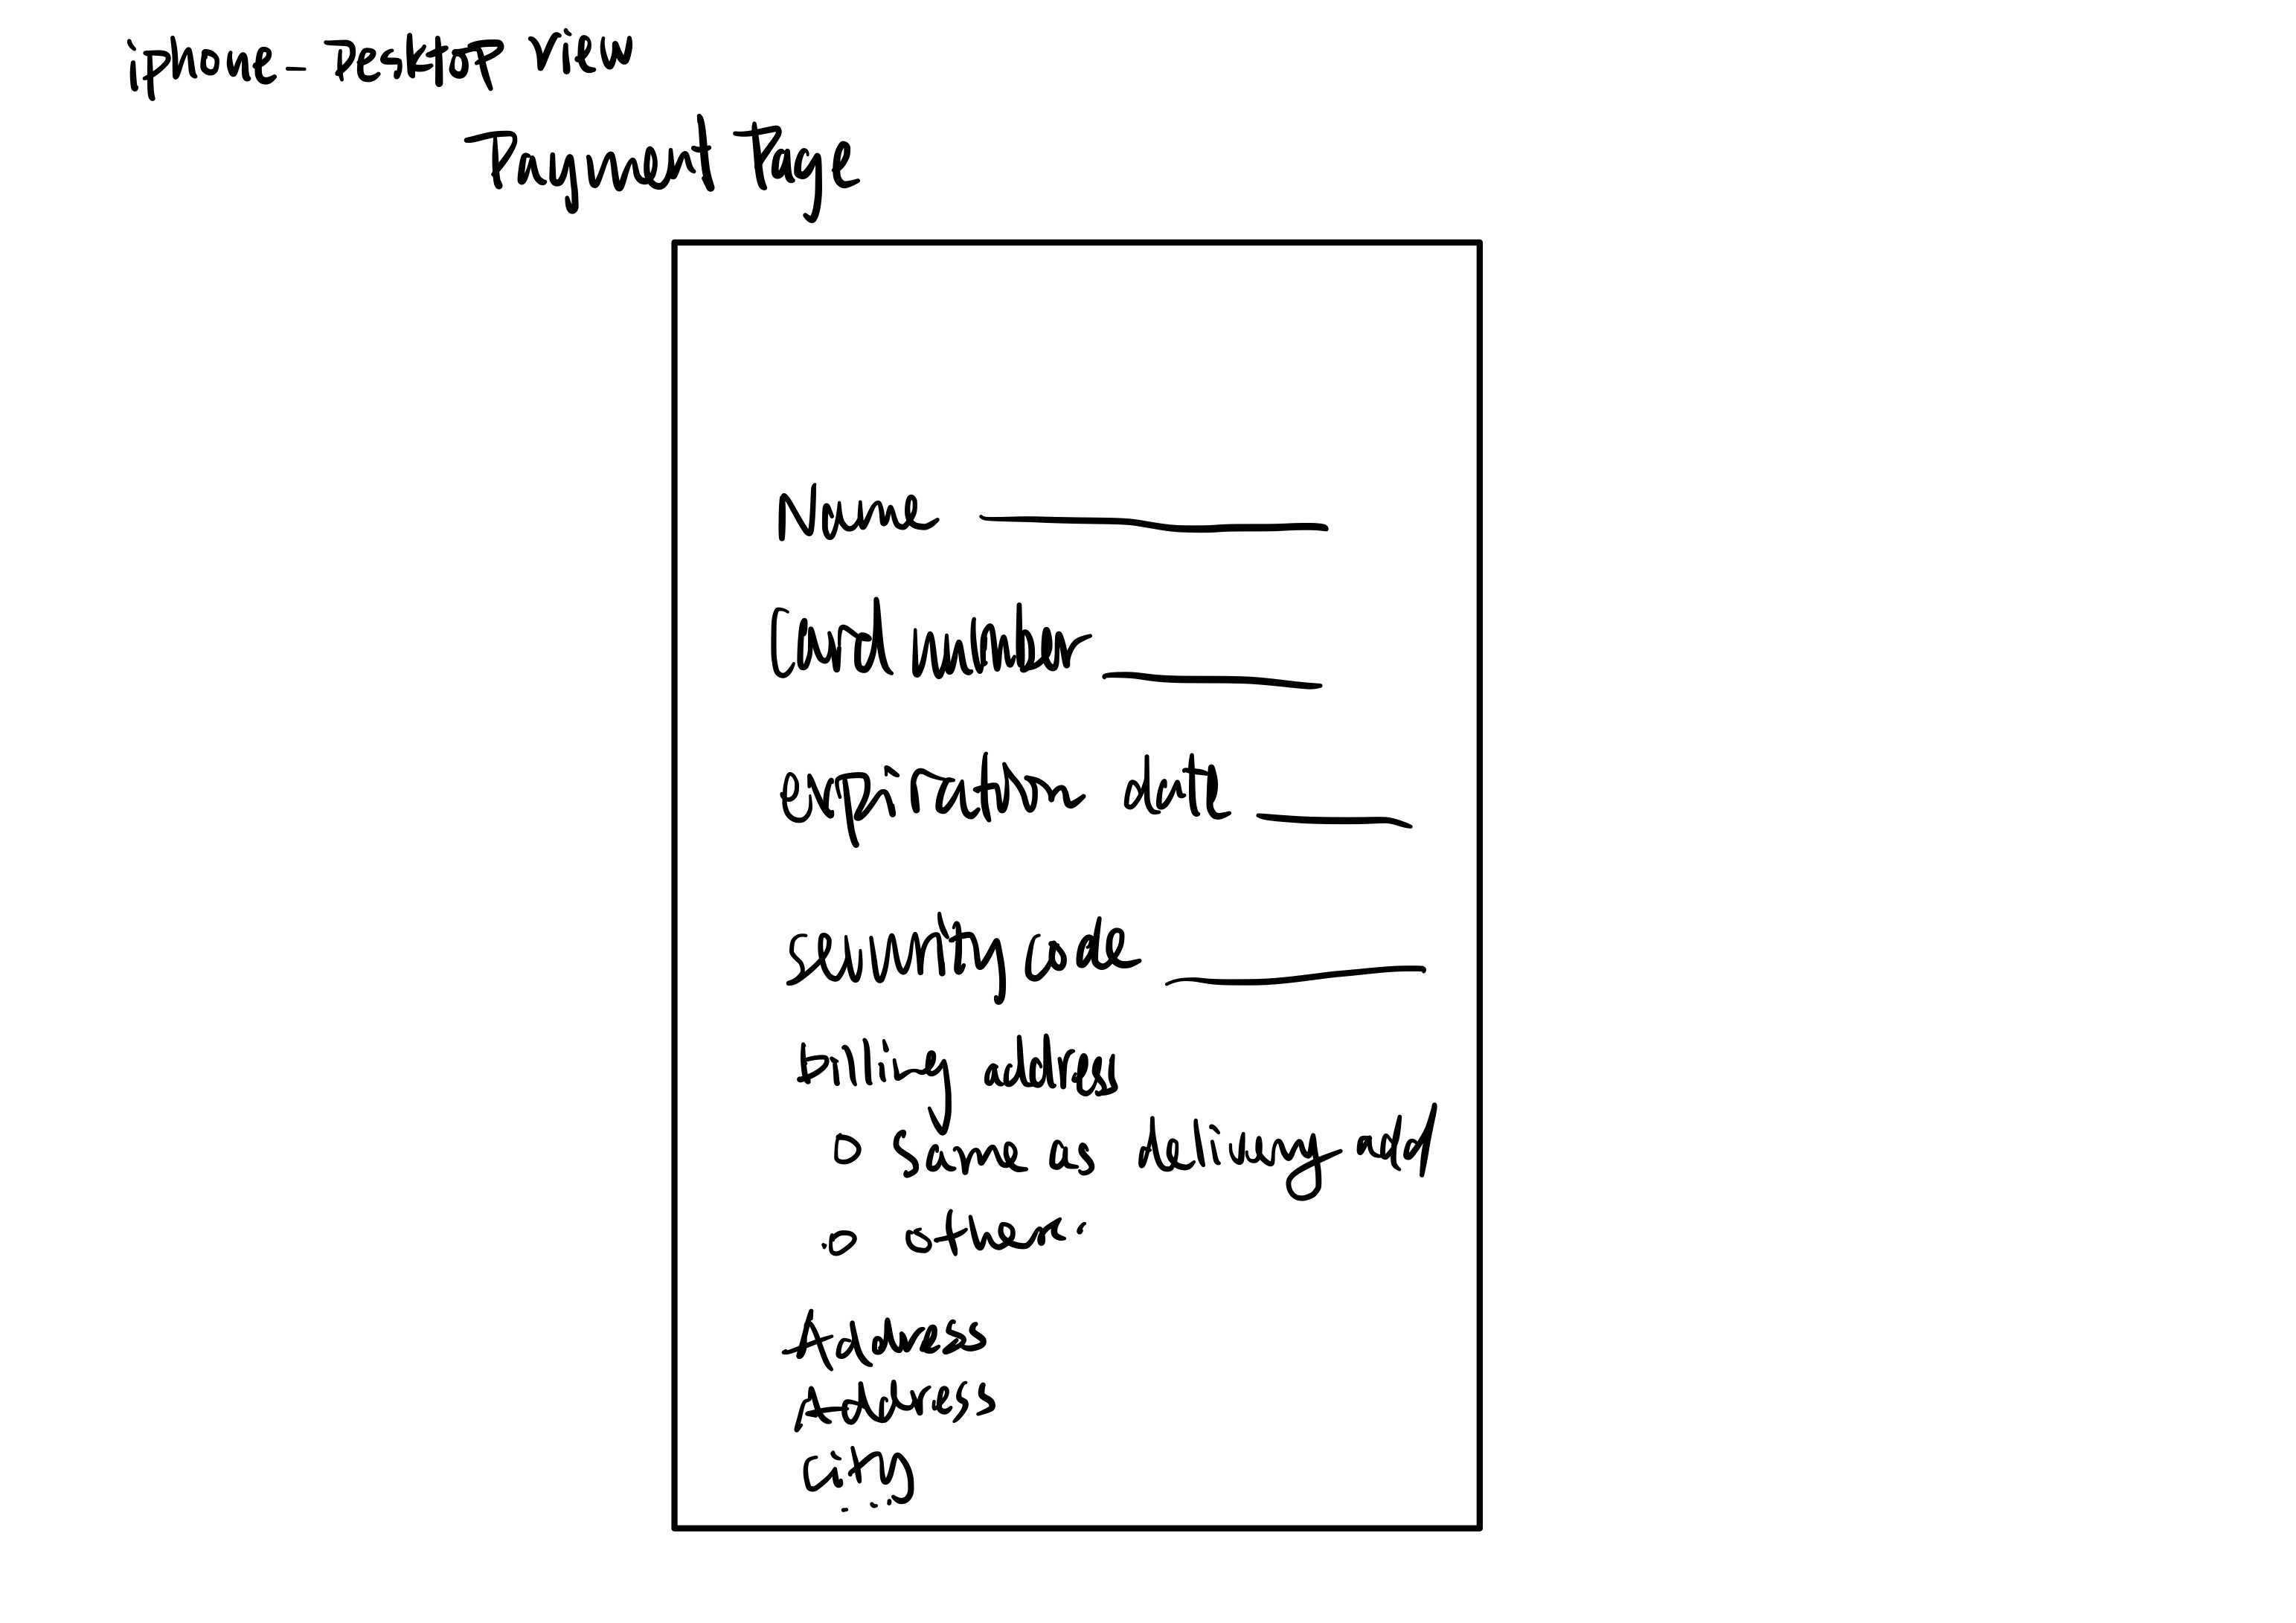 iphone - Desktop view
Payment Page
Name
Card number
expiration date
security code
billing address
same as delivery add
other
Address
Address
City
...